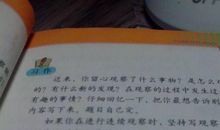 习作
近来，你留心观察了什么事物？是怎么
的？有什么新的发现？在观察的过程中发生过
有趣的事情？仔细回忆一下，把你最想告诉别
内容写下来。题目自己定。
如果你在进行连续观察时，坚持写观察